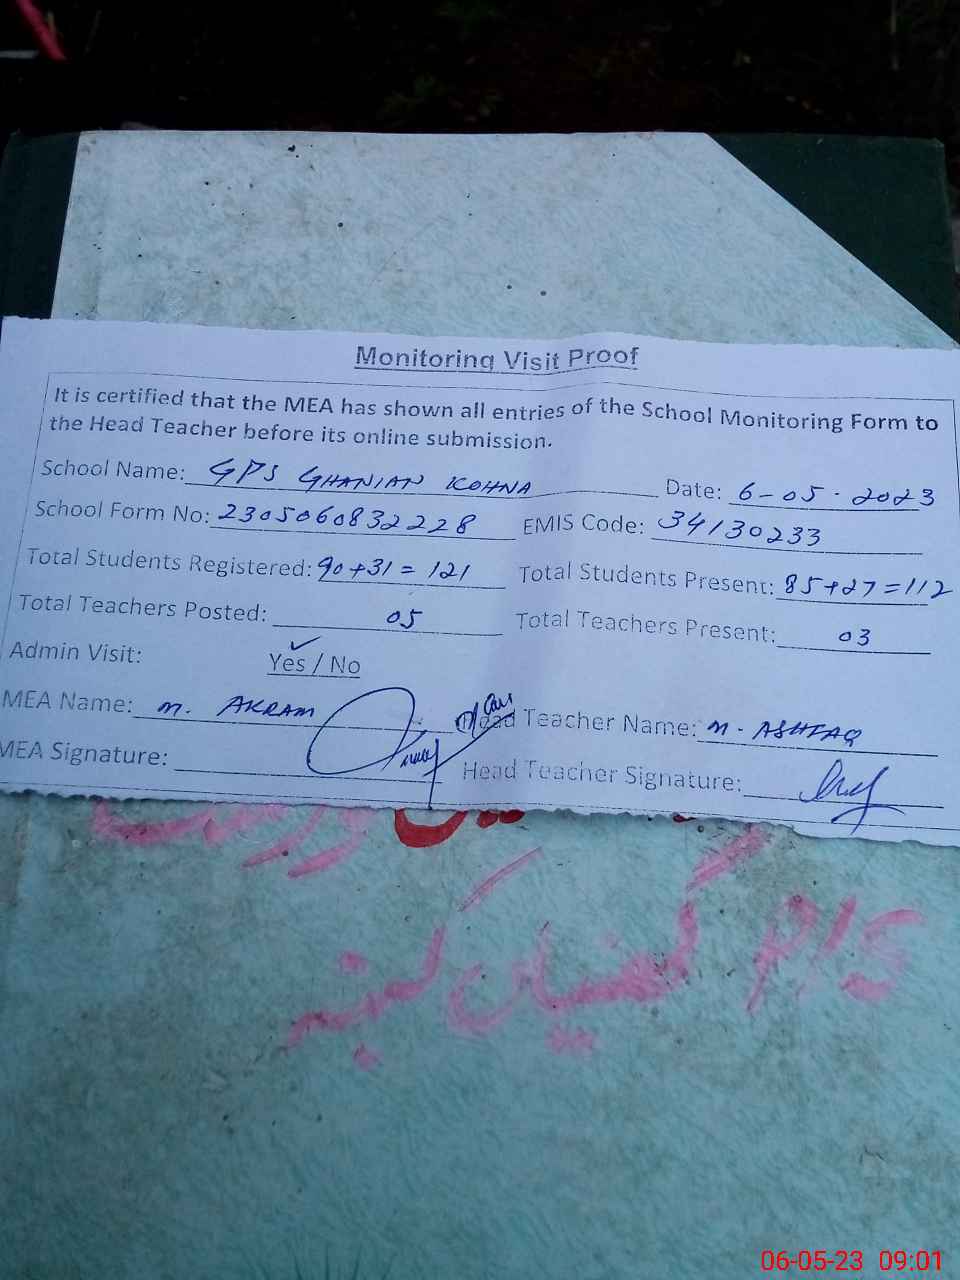 Monitoring Visit Proof
It is certified that the MEA has shown all entries of the School Monitoring Form to
the Head Teacher before its online submission.
School Name: GPS GHANIAN KOHNA Date: 6-05-2023
School Form No: 2305060832228 EMIS Code: 34130233
Total Students Registered: 90+31=121 Total Students Present: 85+27=112
Total Teachers Posted: 05 Total Teachers Present: 03
Admin Visit: Yes / No
MEA Name: M. AKRAM Head Teacher Name: M. ASHFAQ
MEA Signature: Head Teacher Signature:
P/S گھنیاں کہنہ
06-05-23 09:01